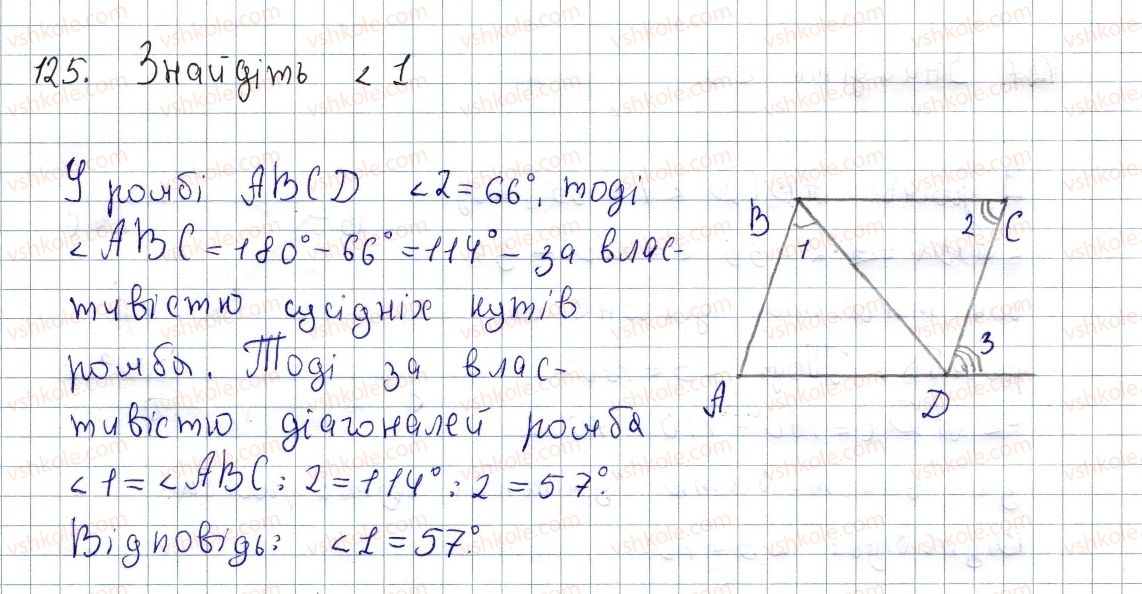 125. Знайдіть < 1
У ромбі ABCD <2 = 66°, тоді
< ABC = 180° - 66° = 114° - за влас-
тивістю сусідніх кутів
ромба. Тоді за влас-
тивістю діагоналей ромба
< 1 = < ABC : 2 = 114° : 2 = 57°.
Відповідь: < 1 = 57°.
B 1 2 C
3
A D
vshkole.com